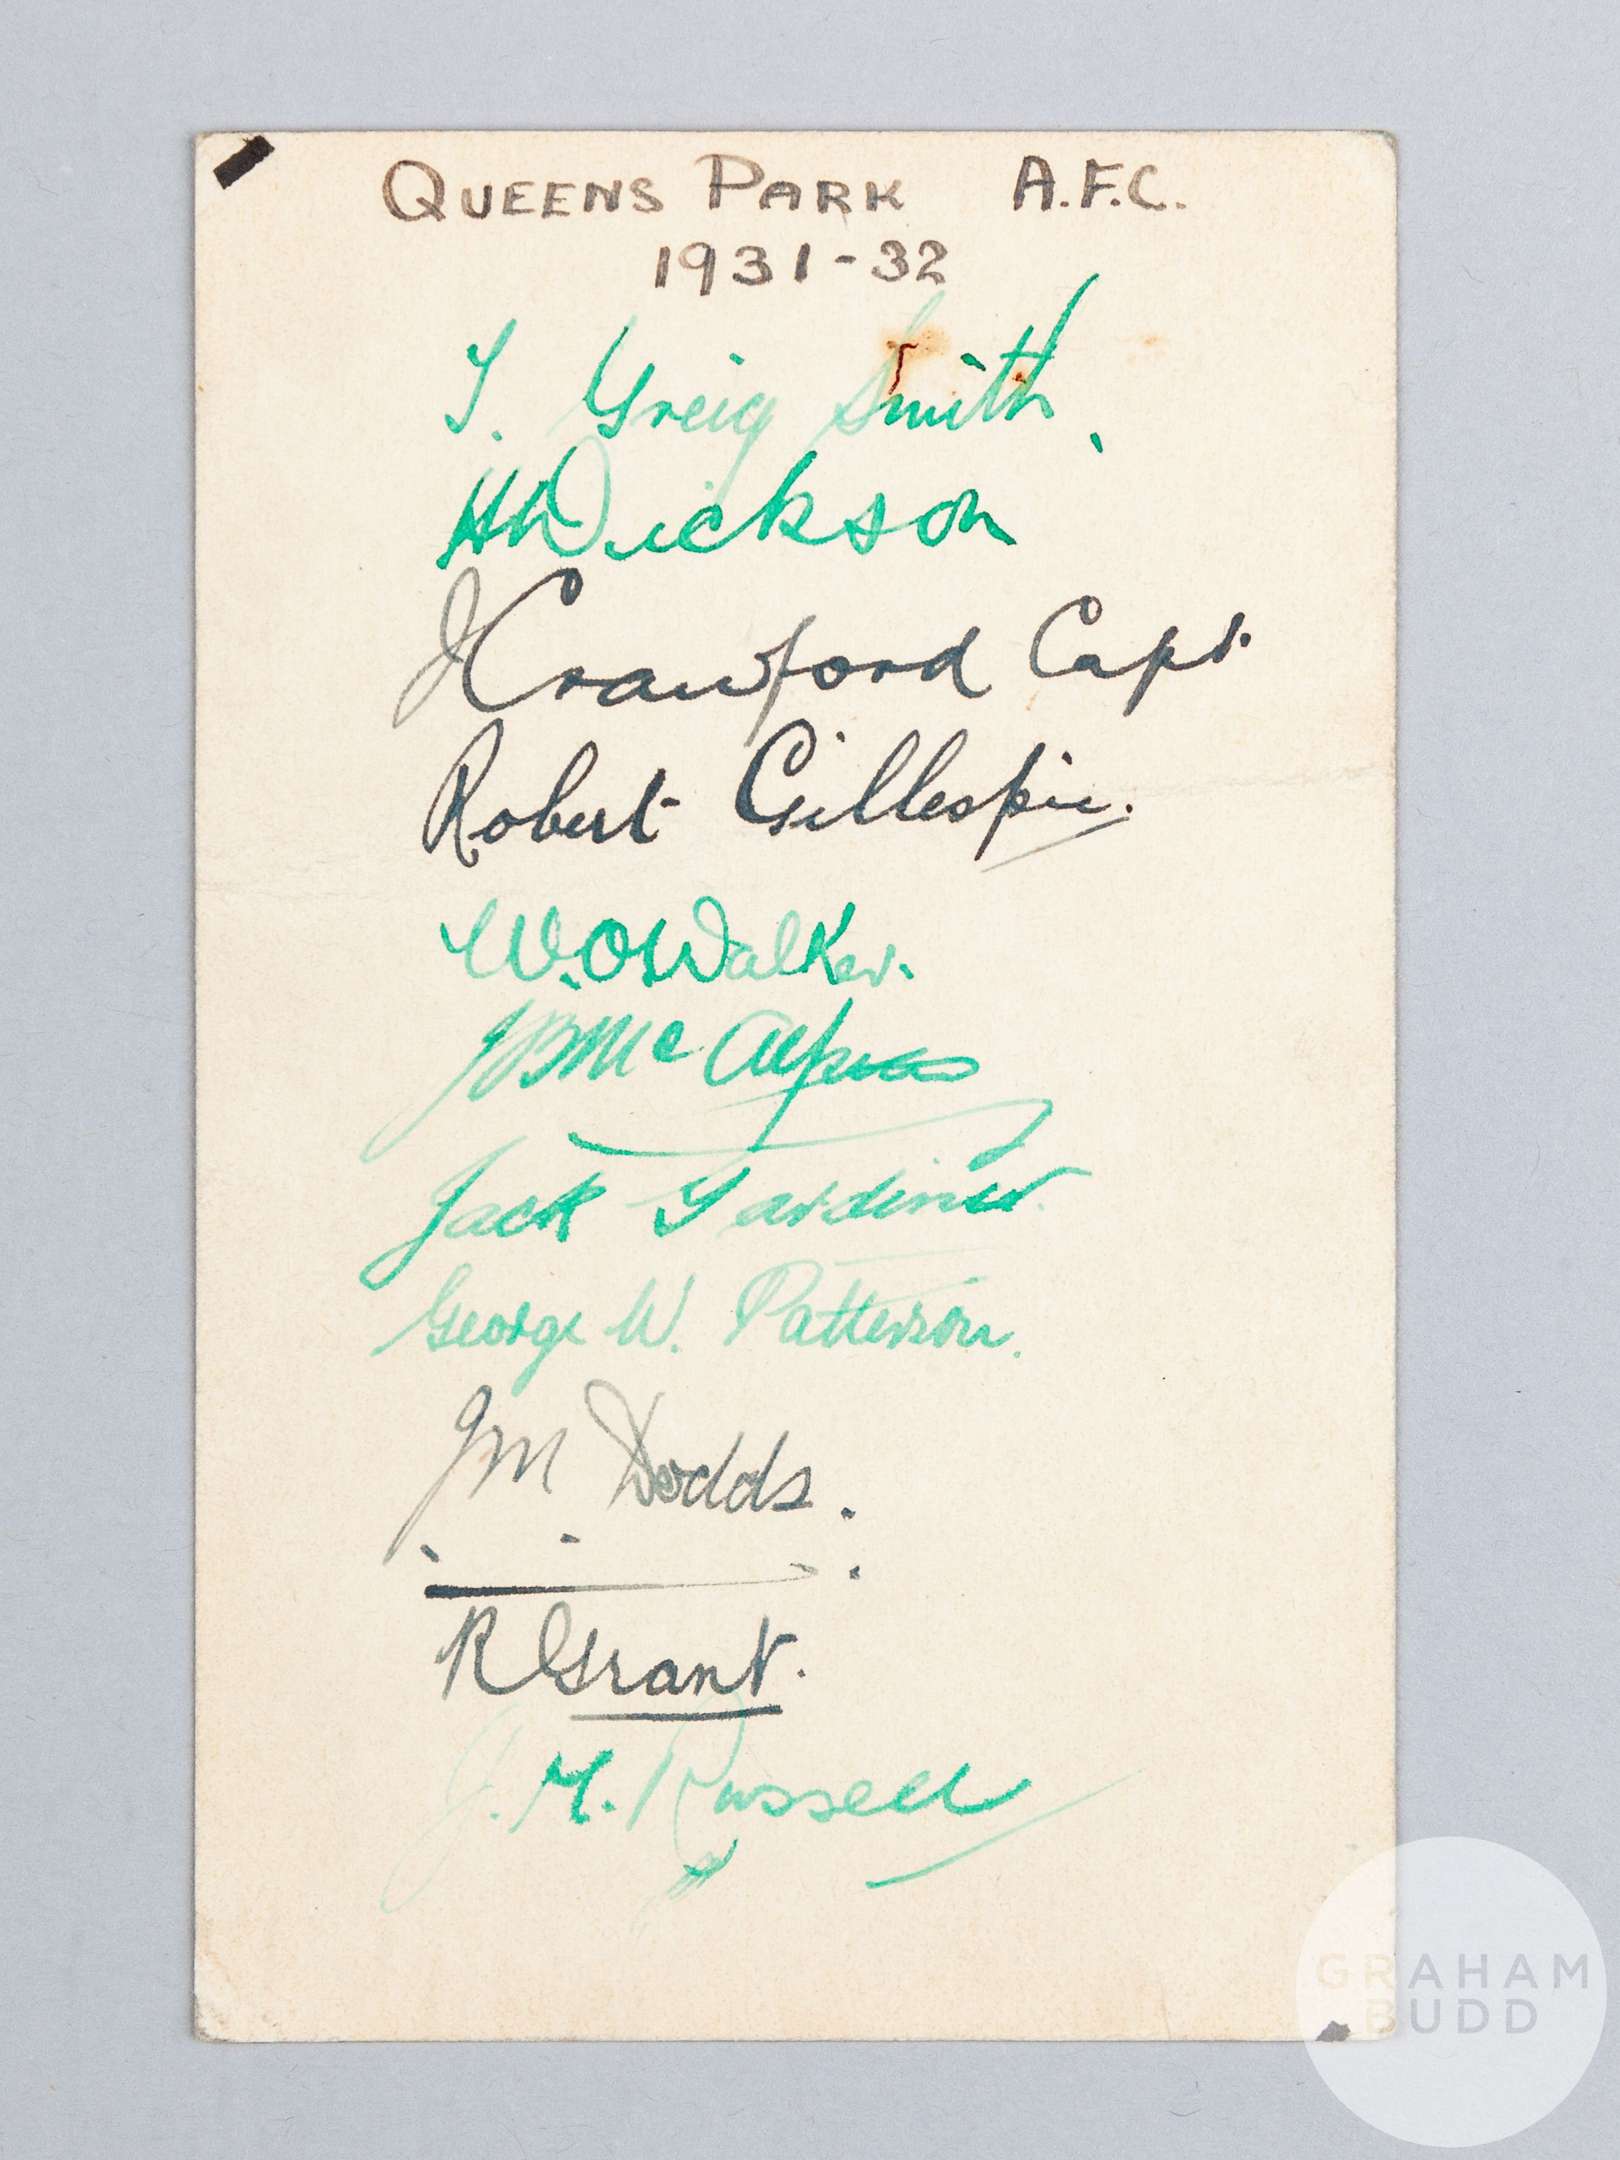 QUEENS PARK A.F.C.
1931-32
T. Greig Smith.
Dickson
J Crawford Capt.
Robert Gillespie.
W. O. Walker.
JB Mc Alpine
Jack Gardiner.
George W. Patterson.
JM Dodds.
R Grant.
J. M. Russell
GRAHAM
BUDD